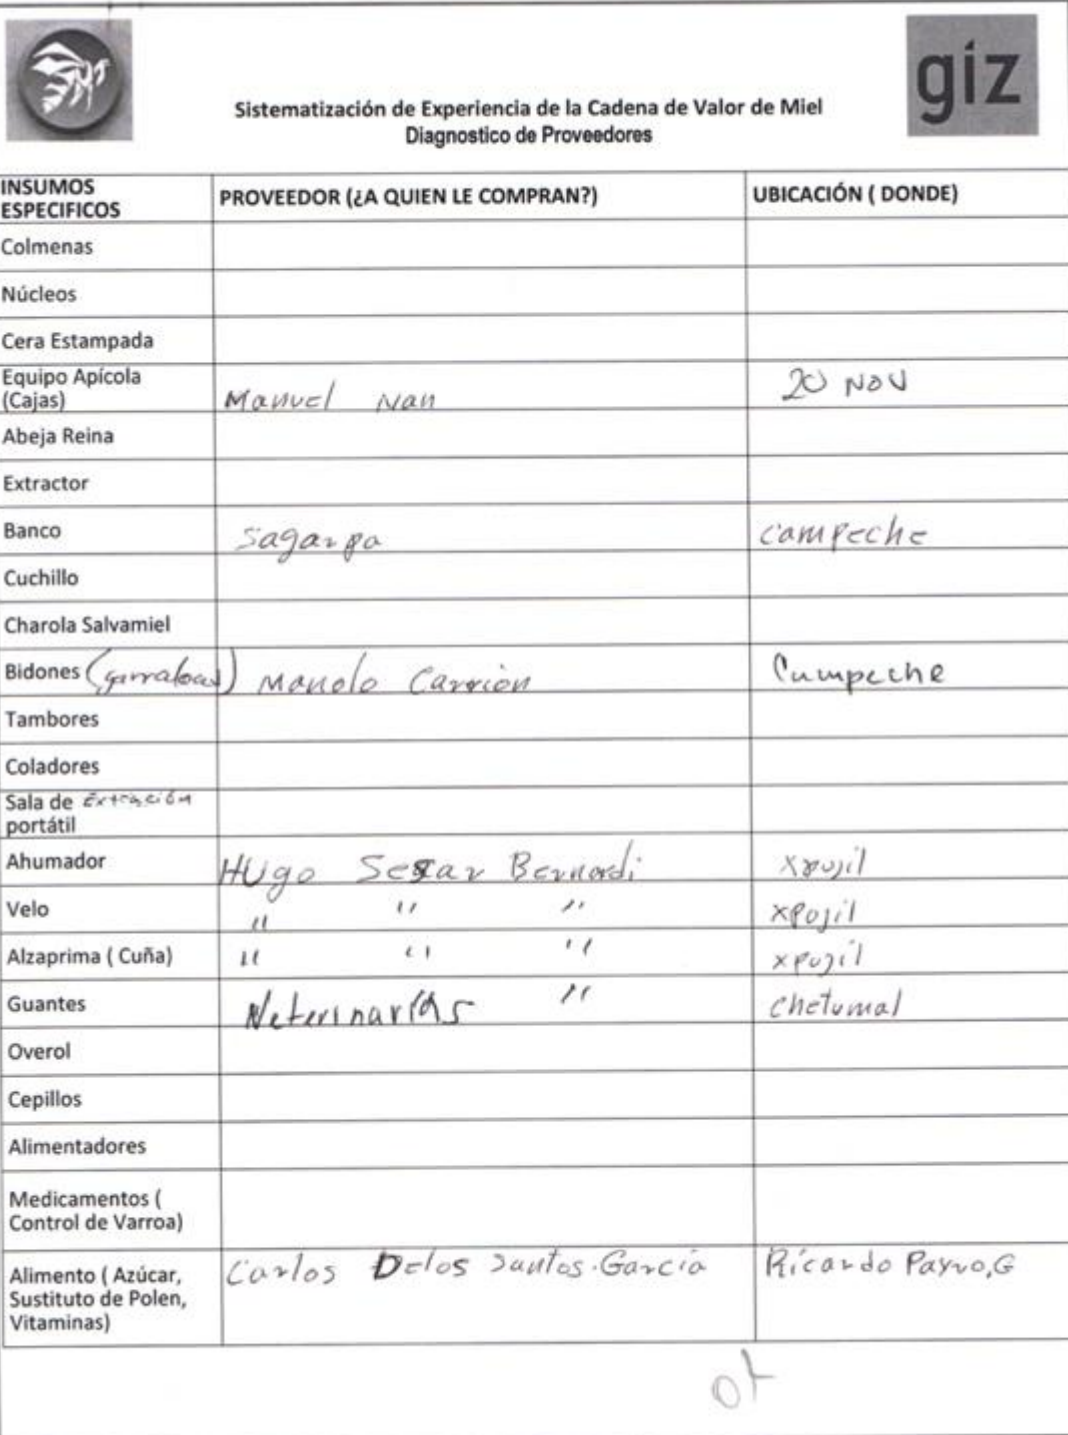 giz
Sistematización de Experiencia de la Cadena de Valor de Miel
Diagnostico de Proveedores
INSUMOS ESPECIFICOS PROVEEDOR (¿A QUIEN LE COMPRAN?) UBICACIÓN ( DONDE)
Colmenas
Núcleos
Cera Estampada
Equipo Apícola (Cajas) Manuel Nan 20 NOV
Abeja Reina
Extractor
Banco Sagarpa campeche
Cuchillo
Charola Salvamiel
Bidones Manolo Carrion Campeche
Tambores
Coladores
Sala de Extracción portátil
Ahumador HUgo Bernardi xpujil
Velo " " " xpujil
Alzaprima ( Cuña) " " " xpujil
Guantes Veterinarias " chetumal
Overol
Cepillos
Alimentadores
Medicamentos ( Control de Varroa)
Alimento ( Azúcar, Sustituto de Polen, Vitaminas) Carlos Delos Santos Garcia Ricardo Payro,G